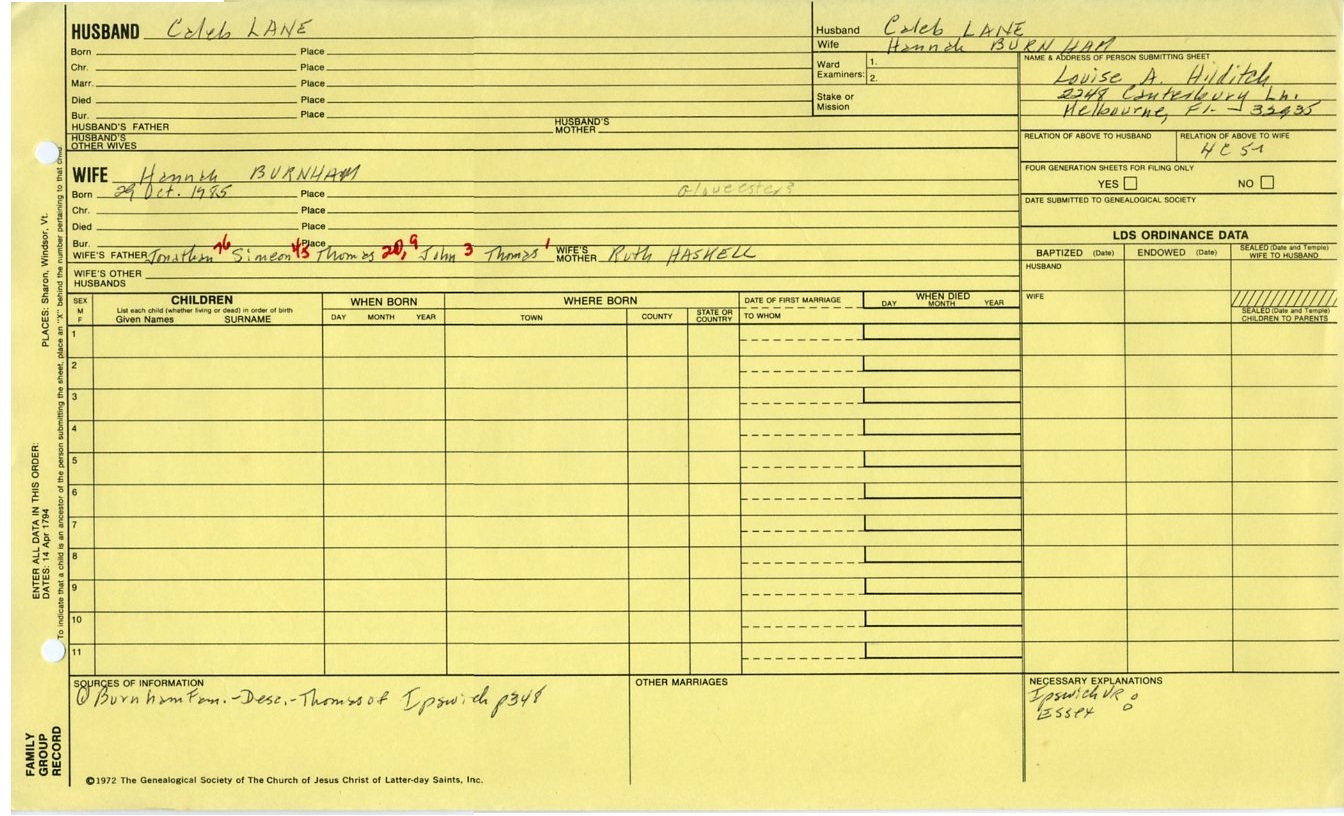 HUSBAND Caleb LANE
Born Place
Chr. Place
Marr. Place
Died Place
Bur. Place
HUSBAND'S FATHER HUSBAND'S MOTHER
HUSBAND'S OTHER WIVES
Husband Caleb LANE
Wife Hannah BURNHAM
Ward Examiners: 1.
2.
Stake or Mission
NAME & ADDRESS OF PERSON SUBMITTING SHEET
Louise A. Hilditch
2248 Canterbury Ln.
Melbourne, Fl - 32935
RELATION OF ABOVE TO HUSBAND RELATION OF ABOVE TO WIFE
4C 5r
FOUR GENERATION SHEETS FOR FILING ONLY
YES NO
DATE SUBMITTED TO GENEALOGICAL SOCIETY
WIFE Hannah BURNHAM
Born 29 Oct. 1985 Place Gloucester?
Chr. Place
Died Place
Bur. Place
WIFE'S FATHER Jonathan 76 Simeon 45 Thomas 20, 9 John 3 Thomas 1 WIFE'S MOTHER Ruth HASKELL
WIFE'S OTHER HUSBANDS
LDS ORDINANCE DATA
BAPTIZED (Date) ENDOWED (Date) SEALED (Date and Temple) WIFE TO HUSBAND
HUSBAND
WIFE
SEALED (Date and Temple) CHILDREN TO PARENTS
SEX M F CHILDREN WHEN BORN WHERE BORN DATE OF FIRST MARRIAGE WHEN DIED
List each child (whether living or dead) in order of birth
Given Names SURNAME DAY MONTH YEAR TOWN COUNTY STATE OR COUNTRY TO WHOM DAY MONTH YEAR
1
2
3
4
5
6
7
8
9
10
11
SOURCES OF INFORMATION
Burnham Fam.-Desc.-Thomas of Ipswich p348
OTHER MARRIAGES
NECESSARY EXPLANATIONS
Ipswich VR o
Essex o
©1972 The Genealogical Society of The Church of Jesus Christ of Latter-day Saints, Inc.
FAMILY GROUP RECORD
ENTER ALL DATA IN THIS ORDER:
DATES: 14 Apr 1794 PLACES: Sharon, Windsor, Vt.
To indicate that a child is an ancestor of the person submitting the sheet, place an "X" behind the number pertaining to that child.